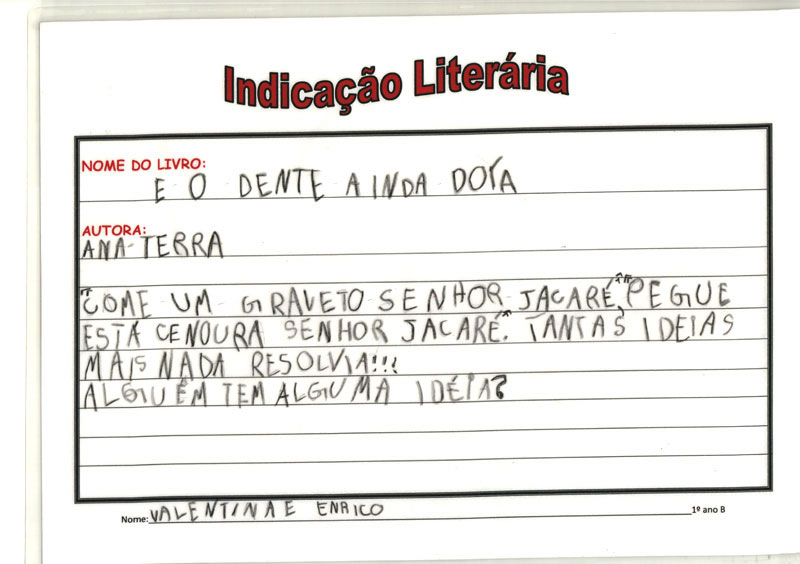 Indicação Literária
NOME DO LIVRO:
E O DENTE AINDA DOÍA
AUTORA:
ANA-TERRA
"COME UM GRAVETO SENHOR JACARÉ," "PEGUE
ESTA CENOURA SENHOR JACARÉ". TANTAS IDEIAS
MAIS NADA RESOLVIA!!!
ALGUÉM TEM ALGUMA IDÉIA?
Nome: VALENTINA E ENRICO 1º ano B